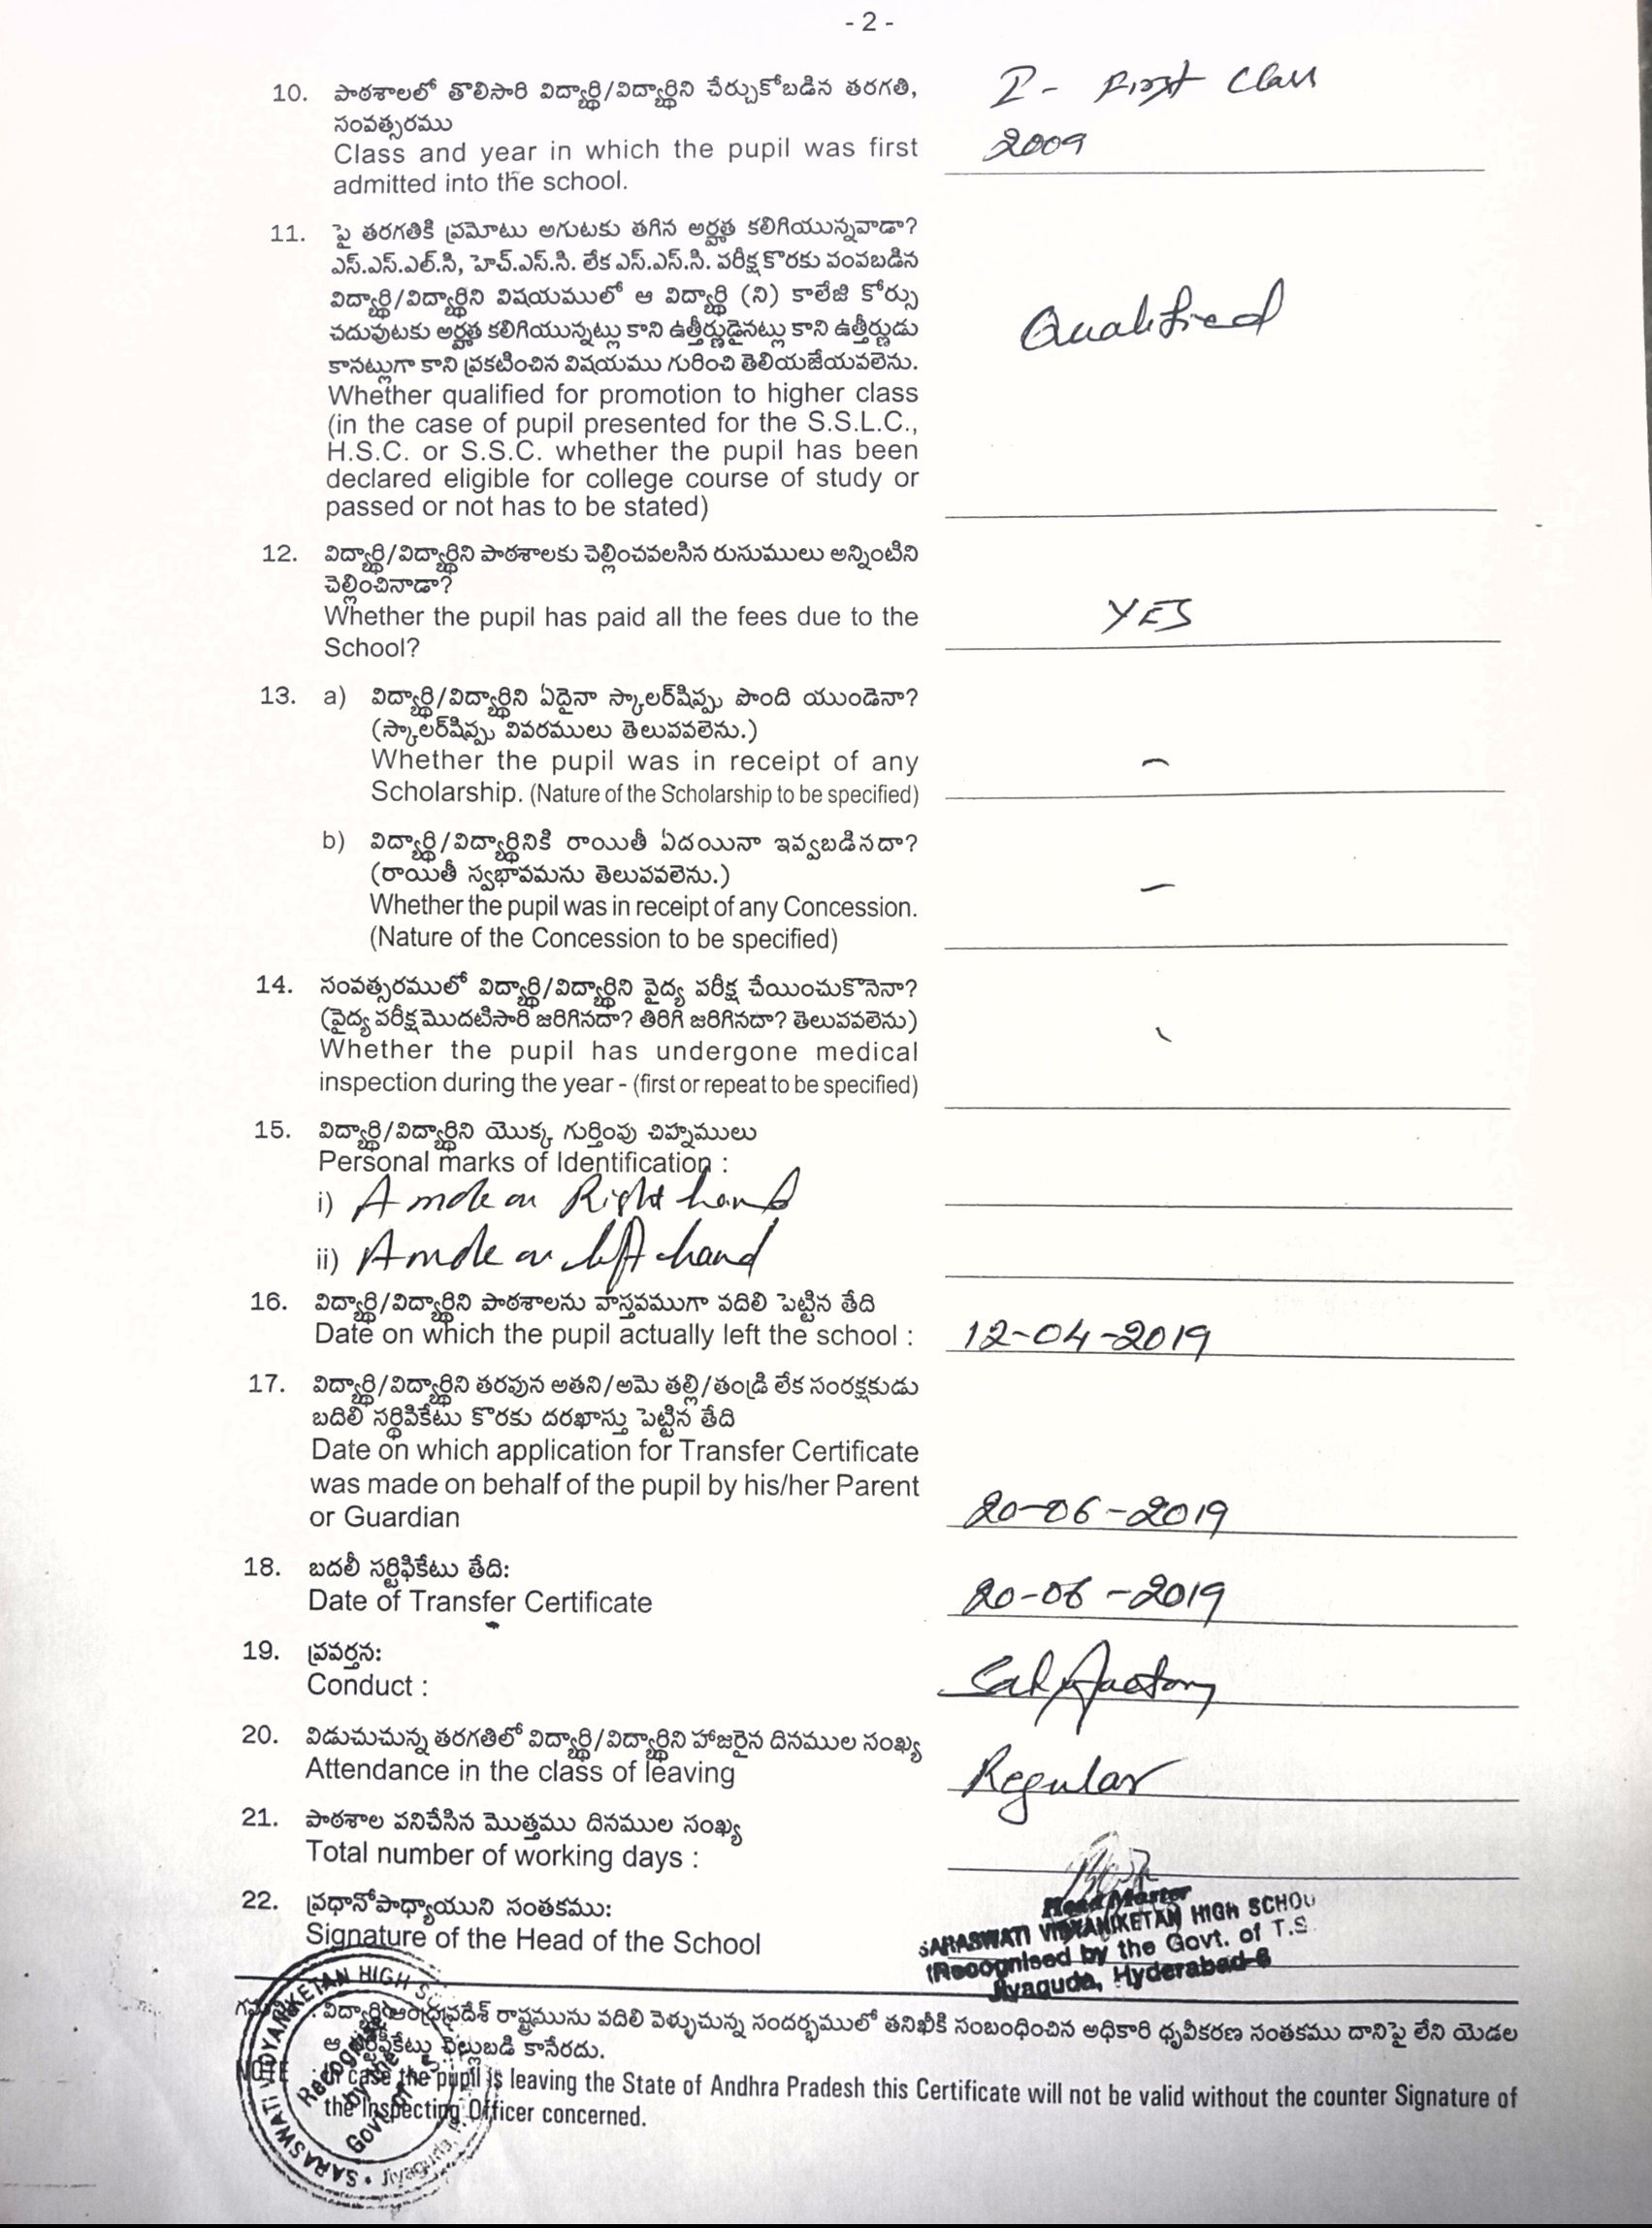 - 2 -
10. పాఠశాలలో తొలిసారి విద్యార్థి/విద్యార్థిని చేర్చుకోబడిన తరగతి, I - First Class
సంవత్సరము
Class and year in which the pupil was first 2009
admitted into the school.
11. పై తరగతికి ప్రమోటు అగుటకు తగిన అర్హత కలిగియున్నవాడా?
ఎస్.ఎస్.ఎల్.సి, హెచ్.ఎస్.సి. లేక ఎస్.ఎస్.సి. పరీక్ష కొరకు పంపబడిన
విద్యార్థి/విద్యార్థిని విషయములో ఆ విద్యార్థి (ని) కాలేజి కోర్సు
చదువుటకు అర్హత కలిగియున్నట్లు కాని ఉత్తీర్ణుడైనట్లు కాని ఉత్తీర్ణుడు Qualified
కానట్లుగా కాని ప్రకటించిన విషయము గురించి తెలియజేయవలెను.
Whether qualified for promotion to higher class
(in the case of pupil presented for the S.S.L.C.,
H.S.C. or S.S.C. whether the pupil has been
declared eligible for college course of study or
passed or not has to be stated)
12. విద్యార్థి/విద్యార్థిని పాఠశాలకు చెల్లించవలసిన రుసుములు అన్నింటిని
చెల్లించినాడా?
Whether the pupil has paid all the fees due to the YES
School?
13. a) విద్యార్థి/విద్యార్థిని ఏదైనా స్కాలర్‌షిప్పు పొంది యుండెనా?
(స్కాలర్‌షిప్పు వివరములు తెలుపవలెను.)
Whether the pupil was in receipt of any -
Scholarship. (Nature of the Scholarship to be specified)
b) విద్యార్థి/విద్యార్థినికి రాయితీ ఏదయినా ఇవ్వబడినదా?
(రాయితీ స్వభావమను తెలుపవలెను.) -
Whether the pupil was in receipt of any Concession.
(Nature of the Concession to be specified)
14. సంవత్సరములో విద్యార్థి/విద్యార్థిని వైద్య పరీక్ష చేయించుకొనెనా?
(వైద్య పరీక్ష మొదటిసారి జరిగినదా? తిరిగి జరిగినదా? తెలుపవలెను)
Whether the pupil has undergone medical
inspection during the year - (first or repeat to be specified)
15. విద్యార్థి/విద్యార్థిని యొక్క గుర్తింపు చిహ్నములు
Personal marks of Identification :
i) A mole on Right hand
ii) A mole on left hand
16. విద్యార్థి/విద్యార్థిని పాఠశాలను వాస్తవముగా వదిలి పెట్టిన తేది
Date on which the pupil actually left the school : 12-04-2019
17. విద్యార్థి/విద్యార్థిని తరపున అతని/అమె తల్లి/తండ్రి లేక సంరక్షకుడు
బదిలి సర్థిపికేటు కొరకు దరఖాస్తు పెట్టిన తేది
Date on which application for Transfer Certificate
was made on behalf of the pupil by his/her Parent
or Guardian 20-06-2019
18. బదలీ సర్టిఫికేటు తేది:
Date of Transfer Certificate 20-06-2019
19. ప్రవర్తన:
Conduct : Satisfactory
20. విడుచుచున్న తరగతిలో విద్యార్థి/విద్యార్థిని హాజరైన దినముల సంఖ్య
Attendance in the class of leaving Regular
21. పాఠశాల పనిచేసిన మొత్తము దినముల సంఖ్య
Total number of working days :
22. ప్రధానోపాధ్యాయుని సంతకము: Head Master
Signature of the Head of the School SARASWATI VIDYANIKETAN HIGH SCHOOL
(Recognised by the Govt. of T.S.
Jiyaguda, Hyderabad-6
విద్యార్థి ఆంధ్రప్రదేశ్ రాష్ట్రమును వదిలి వెళ్ళుచున్న సందర్భములో తనిఖీకి సంబంధించిన అధికారి ధృవీకరణ సంతకము దానిపై లేని యెడల
ఆ సర్టిఫికేటు చెల్లుబడి కానేరదు.
NOTE : In case the pupil is leaving the State of Andhra Pradesh this Certificate will not be valid without the counter Signature of
the Inspecting Officer concerned.
SARASWATI VIDYANIKETAN HIGH
Recognised
by the
Govt. of
Jiyaguda,